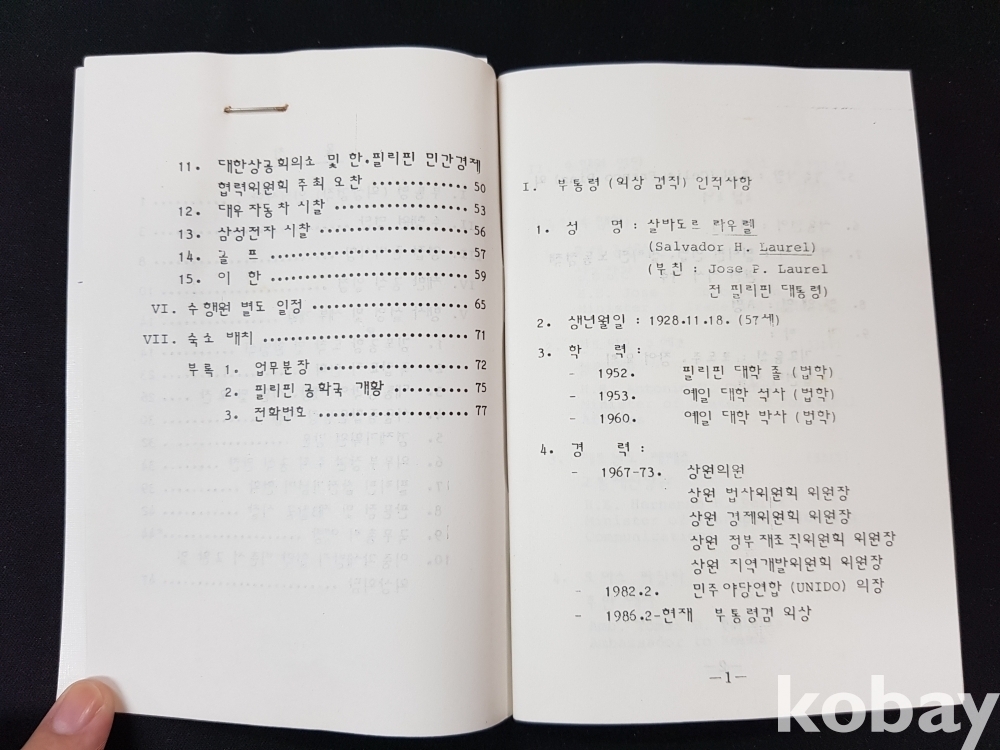 11. 대한상공회의소 및 한.필리핀 민간경제
협력위원회 주최 오찬 ························ 50
12. 대우자동차 시찰 ························ 53
13. 삼성전자 시찰 ························ 56
14. 골 프 ························ 57
15. 이 한 ························ 59
VI. 수행원 별도 일정 ························ 65
VII. 숙소 배치 ························ 71
부록 1. 업무분장 ························ 72
2. 필리핀 공화국 개황 ························ 75
3. 전화번호 ························ 77
I. 부통령 (외상 겸직) 인적사항
1. 성 명 : 살바도르 라우렐
(Salvador H. Laurel)
(부친 : Jose P. Laurel
전 필리핀 대통령)
2. 생년월일 : 1928.11.18. (57세)
3. 학 력 :
- 1952. 필리핀 대학 졸 (법학)
- 1953. 예일 대학 석사 (법학)
- 1960. 예일 대학 박사 (법학)
4. 경 력 :
- 1967-73. 상원의원
상원 법사위원회 위원장
상원 경제위원회 위원장
상원 정부재조직위원회 위원장
상원 지역개발위원회 위원장
- 1982.2. 민주야당연합 (UNIDO) 의장
- 1986.2-현재 부통령겸 외상
-1-
kobay